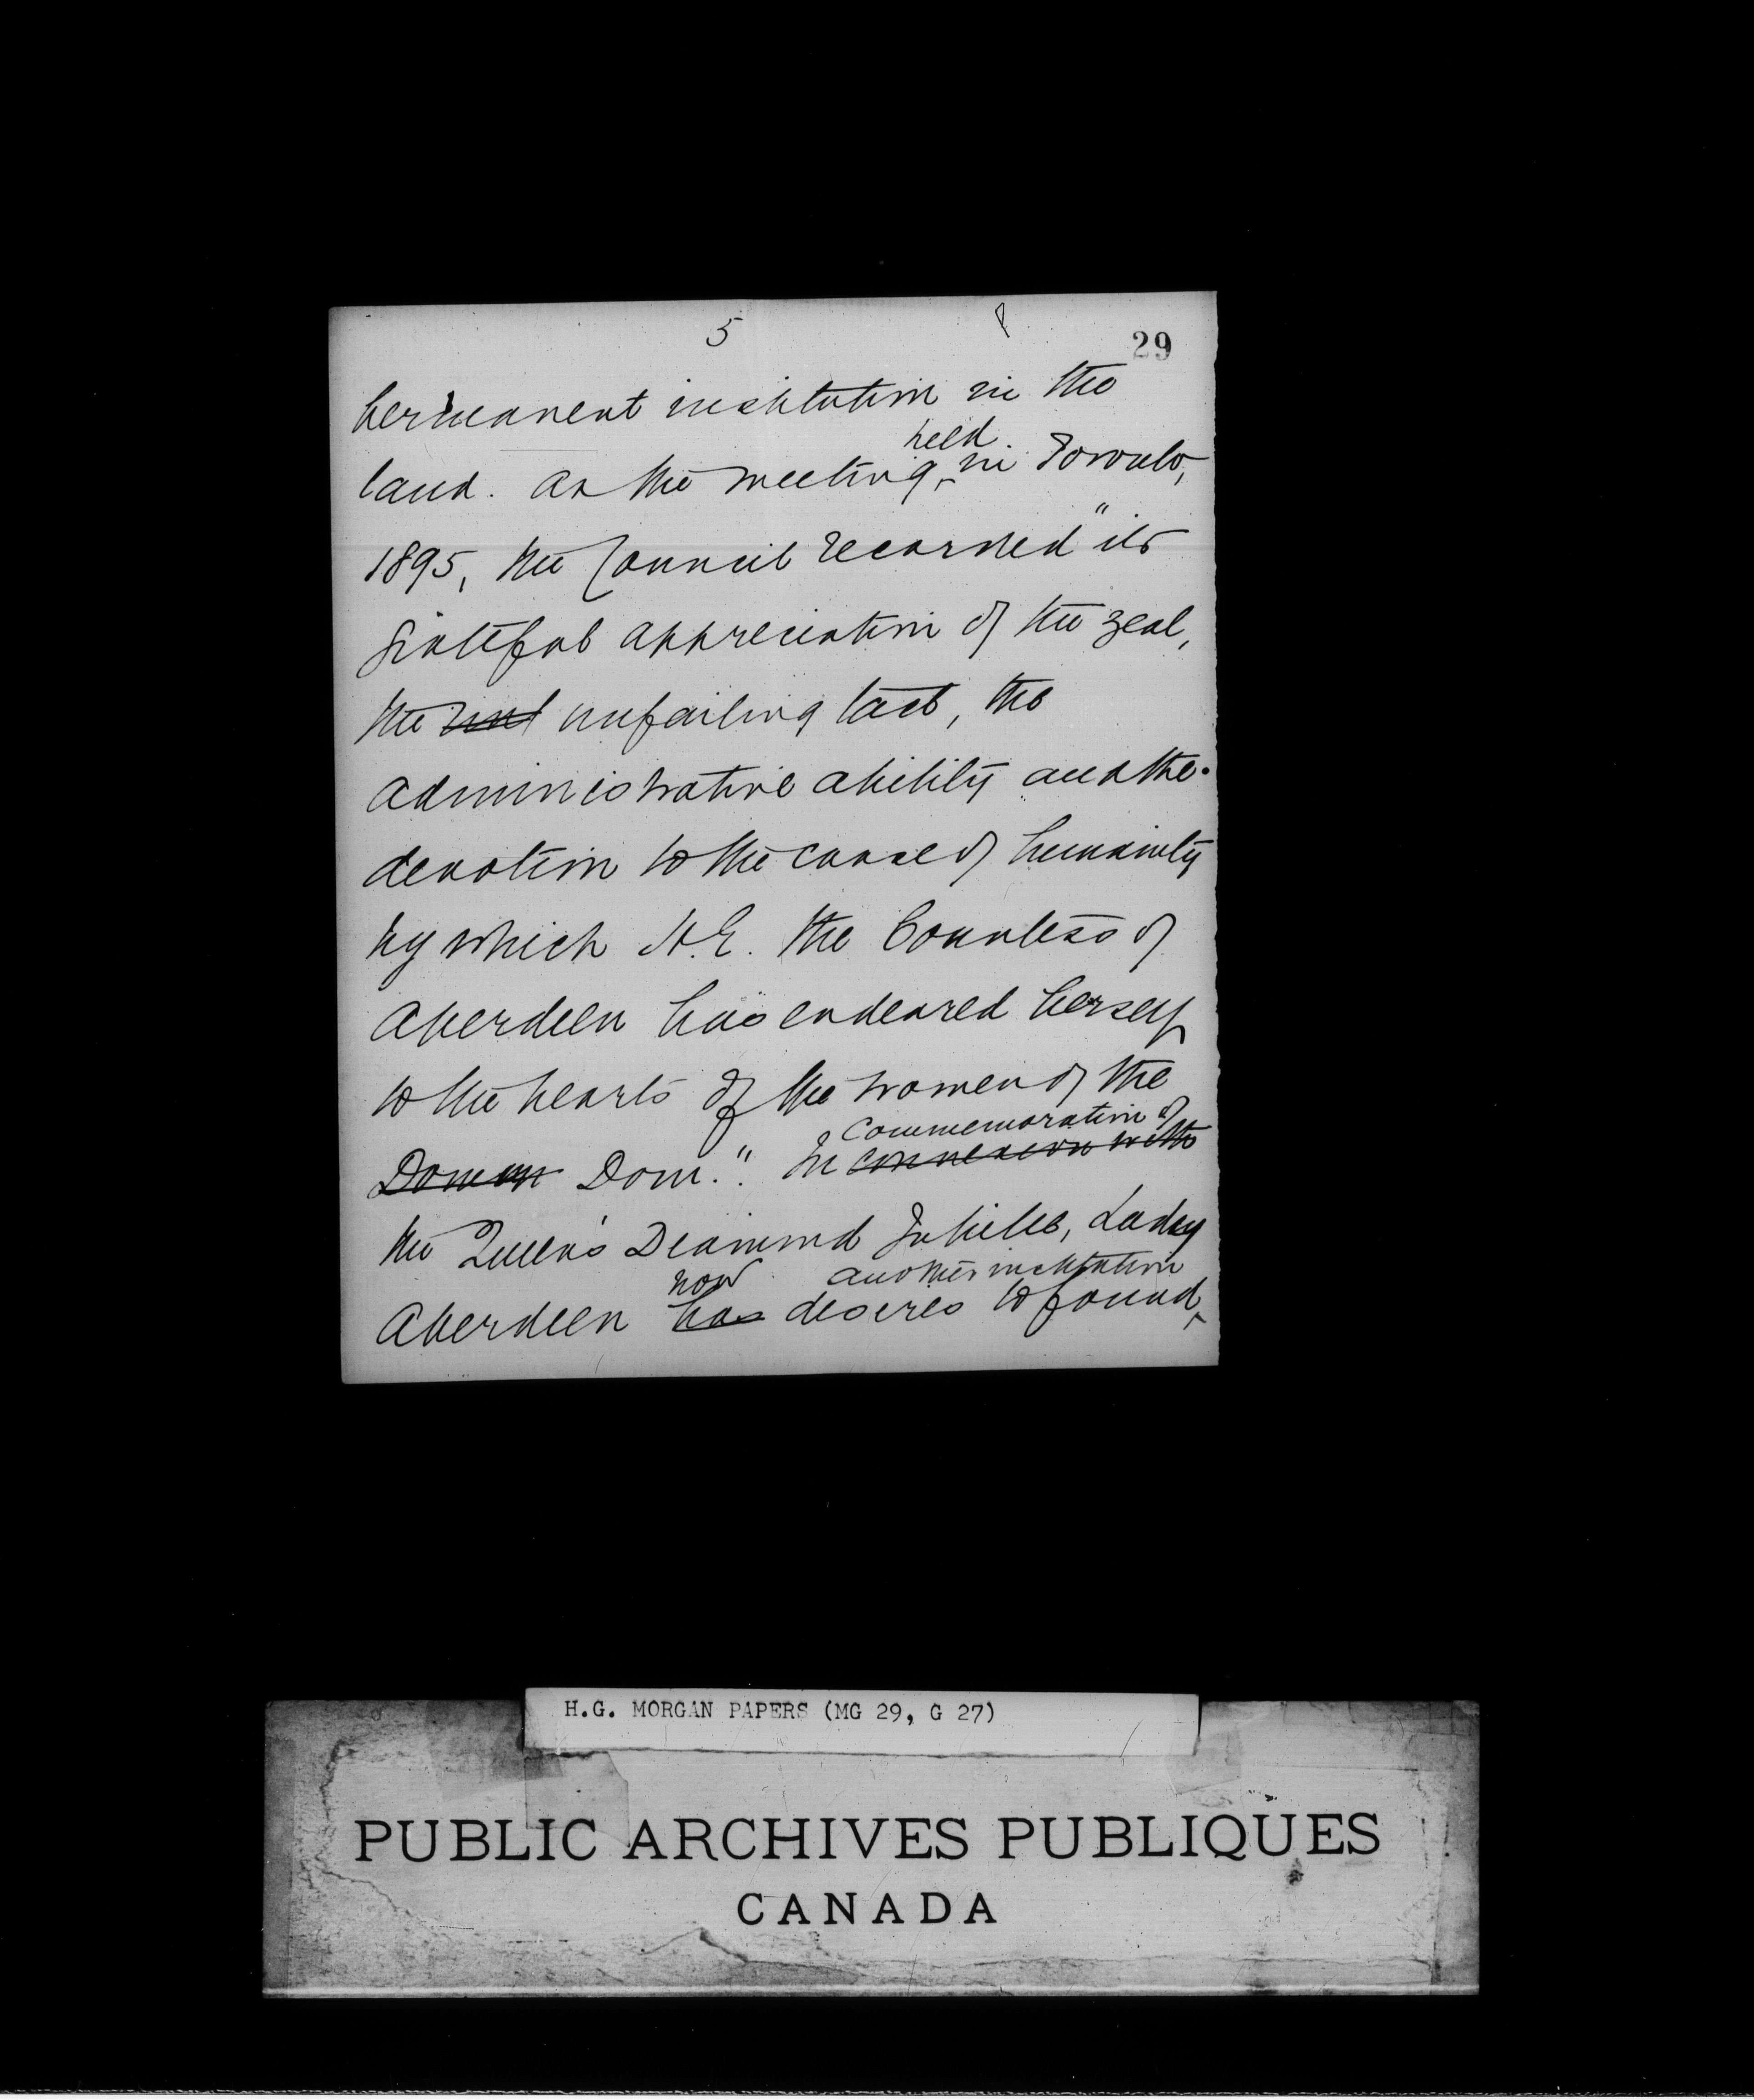 5
29
permanent institution in the
held
land. At the meeting in Toronto,
1895, the Council recorded "its
grateful appreciation of the zeal,
the unfailing tact, the
administrative ability and the
devotion to the cause of humanity
by which H.E. the Countess of
Aberdeen has endeared herself
to the hearts of the women of the
commemoration of
Domin Dom." In connexion with
the Queen's Diamond Jubilee, Lady
now another institution
Aberdeen has desires to found,
H.G. MORGAN PAPERS (MG 29, G 27)
PUBLIC ARCHIVES PUBLIQUES
CANADA